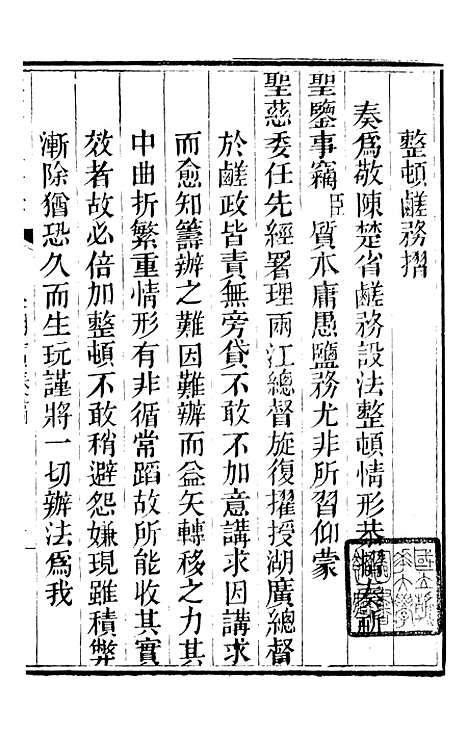 整頓鹺務摺
奏爲敬陳楚省鹺務設法整頓情形恭摺奏祈
聖鑒事竊臣質本庸愚鹽務尤非所習仰蒙
聖慈委任先經署理兩江總督旋復擢授湖廣總督
於鹺政皆責無旁貸不敢不加意講求因講求
而愈知籌辦之難因難辦而益矢轉移之力其
中曲折繁重情形有非循常蹈故所能收其實
效者故必倍加整頓不敢稍避怨嫌現雖積弊
漸除猶恐久而生玩謹將一切辦法爲我